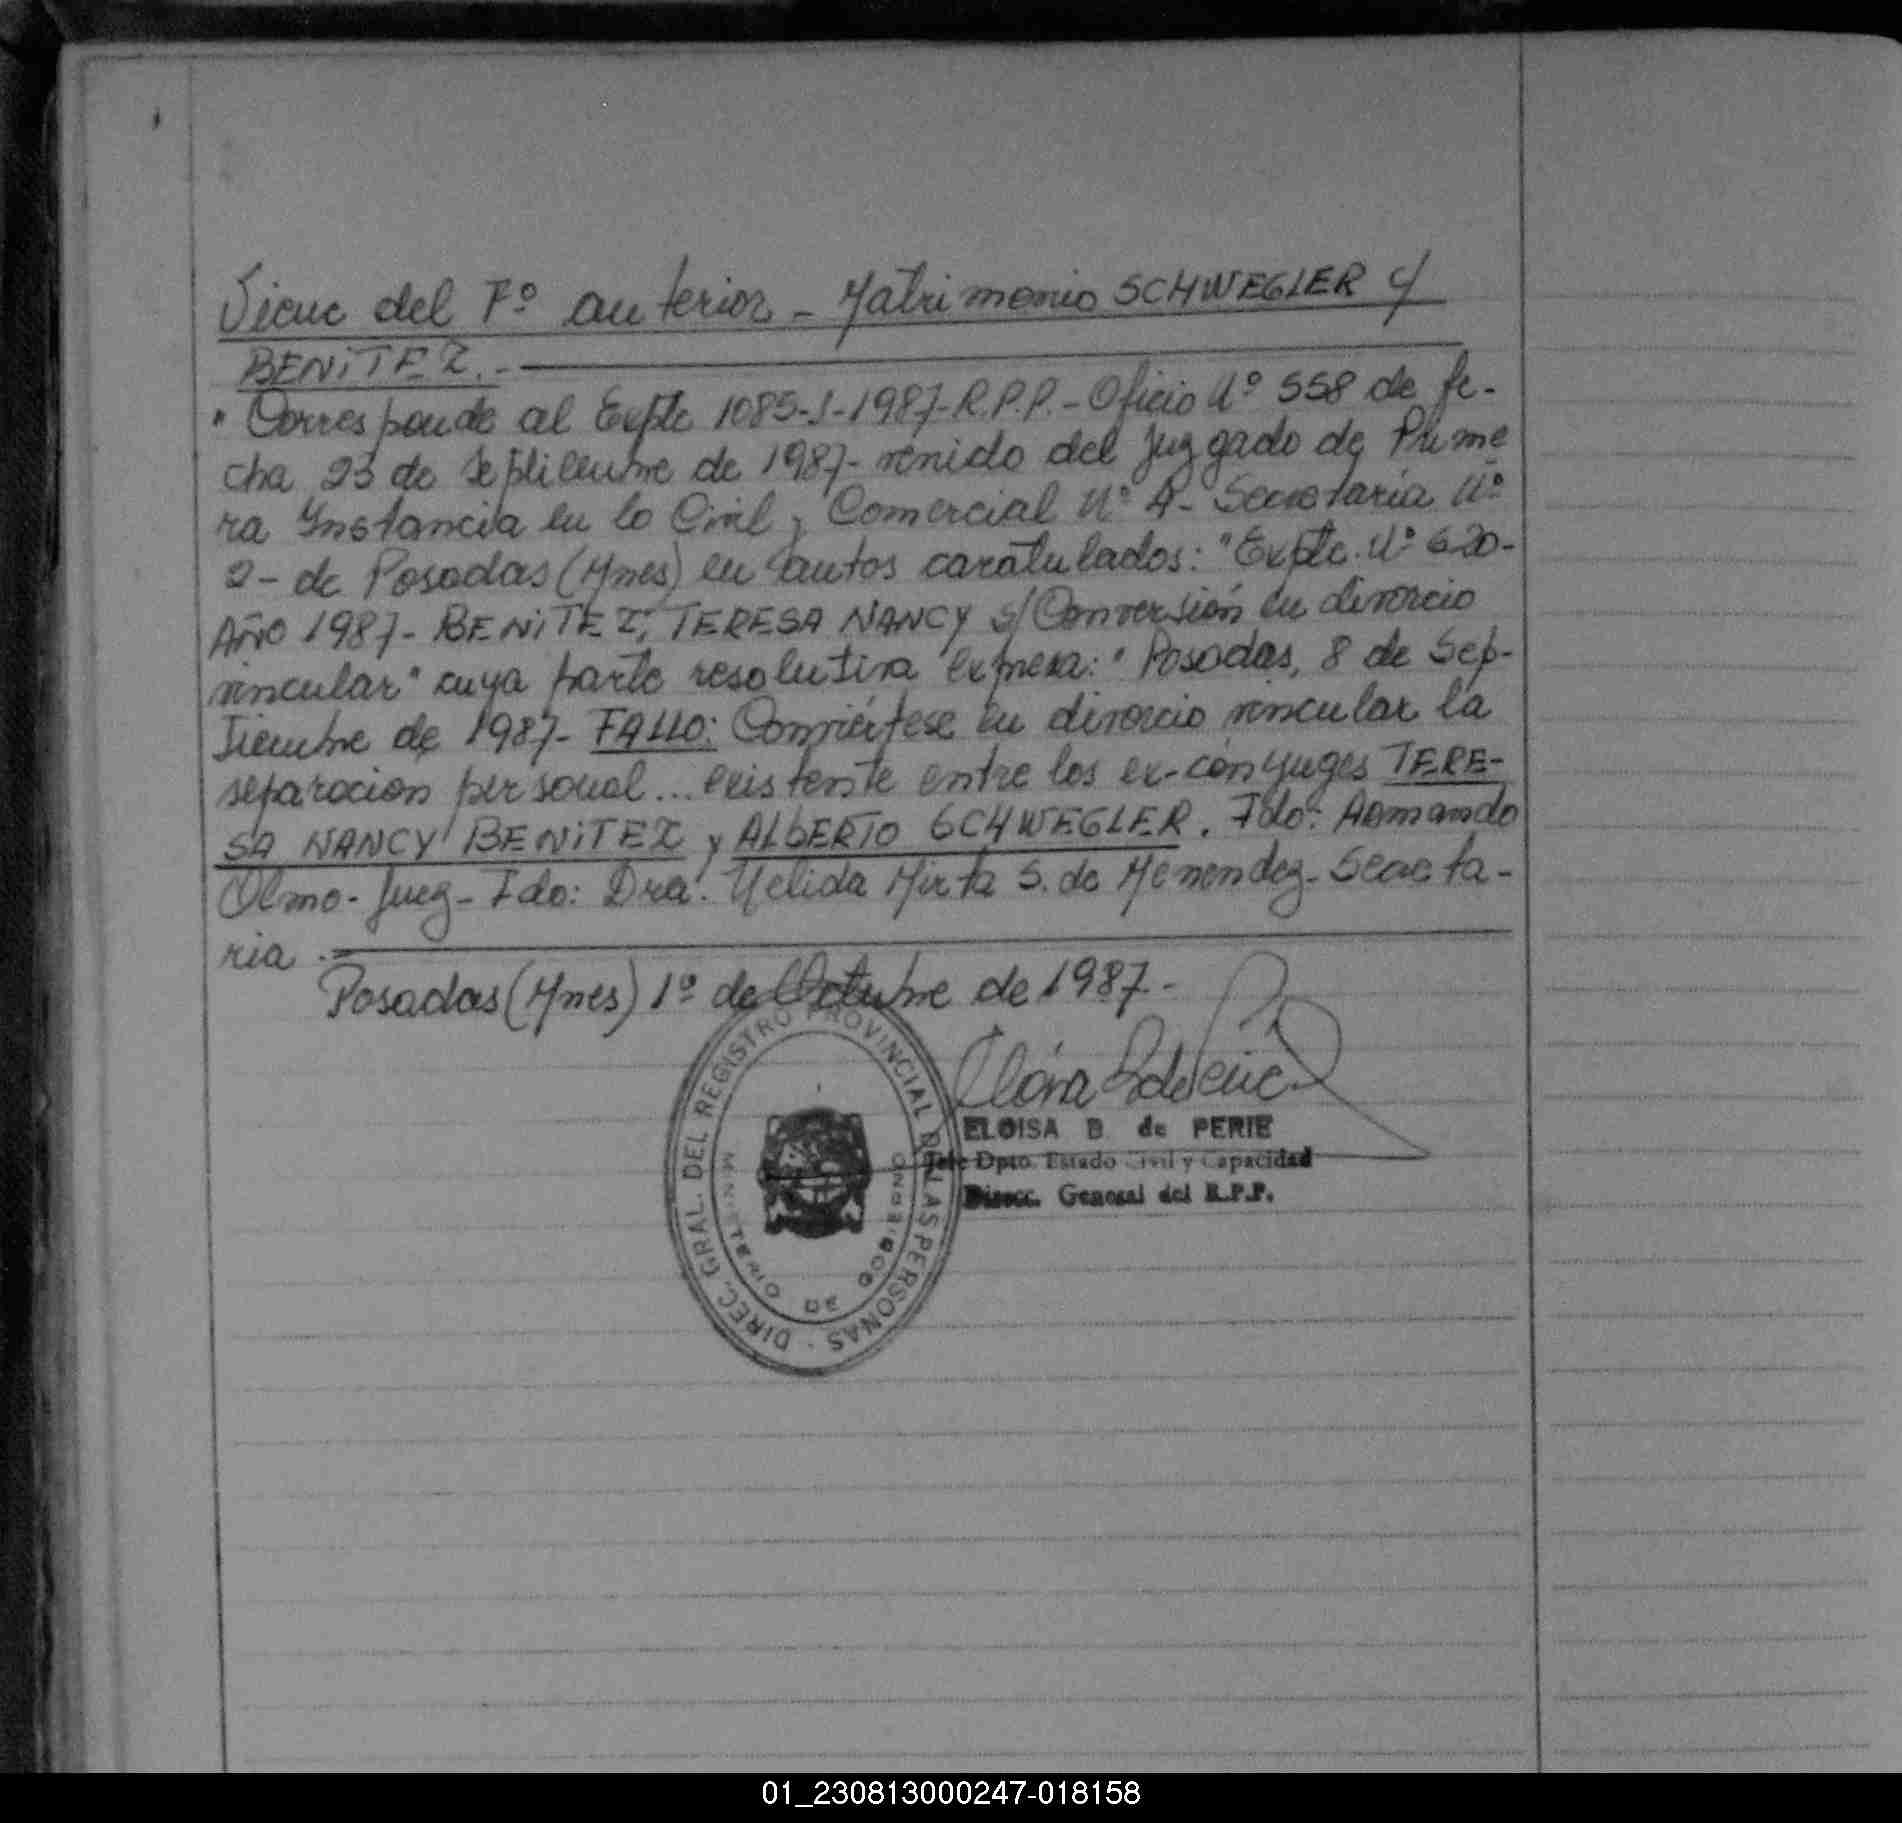 Viene del Fº anterior - Matrimonio SCHWEGLER c/
BENITEZ.-
"Corresponde al Expte 1085-S-1987-R.P.P.- Oficio Nº 558 de fe-
cha 23 de septiembre de 1987- venido del Juzgado de Prime
ra Instancia en lo Civil y Comercial Nº 4- Secretaría Nº
2- de Posadas (Mnes) en autos caratulados: "Expte. Nº 620-
AÑO 1987- BENITEZ, TERESA NANCY s/ Conversión en divorcio
vincular" cuya parte resolutiva expresa: "Posadas, 8 de Sep-
tiembre de 1987- FALLO: Conviértese en divorcio vincular la
separacion personal... existente entre los ex-cónyuges TERE-
SA NANCY BENITEZ y ALBERTO SCHWEGLER. Fdo: Armando
Olmo- Juez- Fdo: Dra. Nelida Mirta S. de Menendez- Secreta-
ria.
Posadas (Mnes) 1º de Octubre de 1987.-
DIREC. GRAL. DEL REGISTRO PROVINCIAL DE LAS PERSONAS
MINISTERIO DE GOBIERNO
ELOISA B. de PERIE
Jefe Dpto. Estado Civil y Capacidad
Direcc. General del R.P.P.
01_230813000247-018158